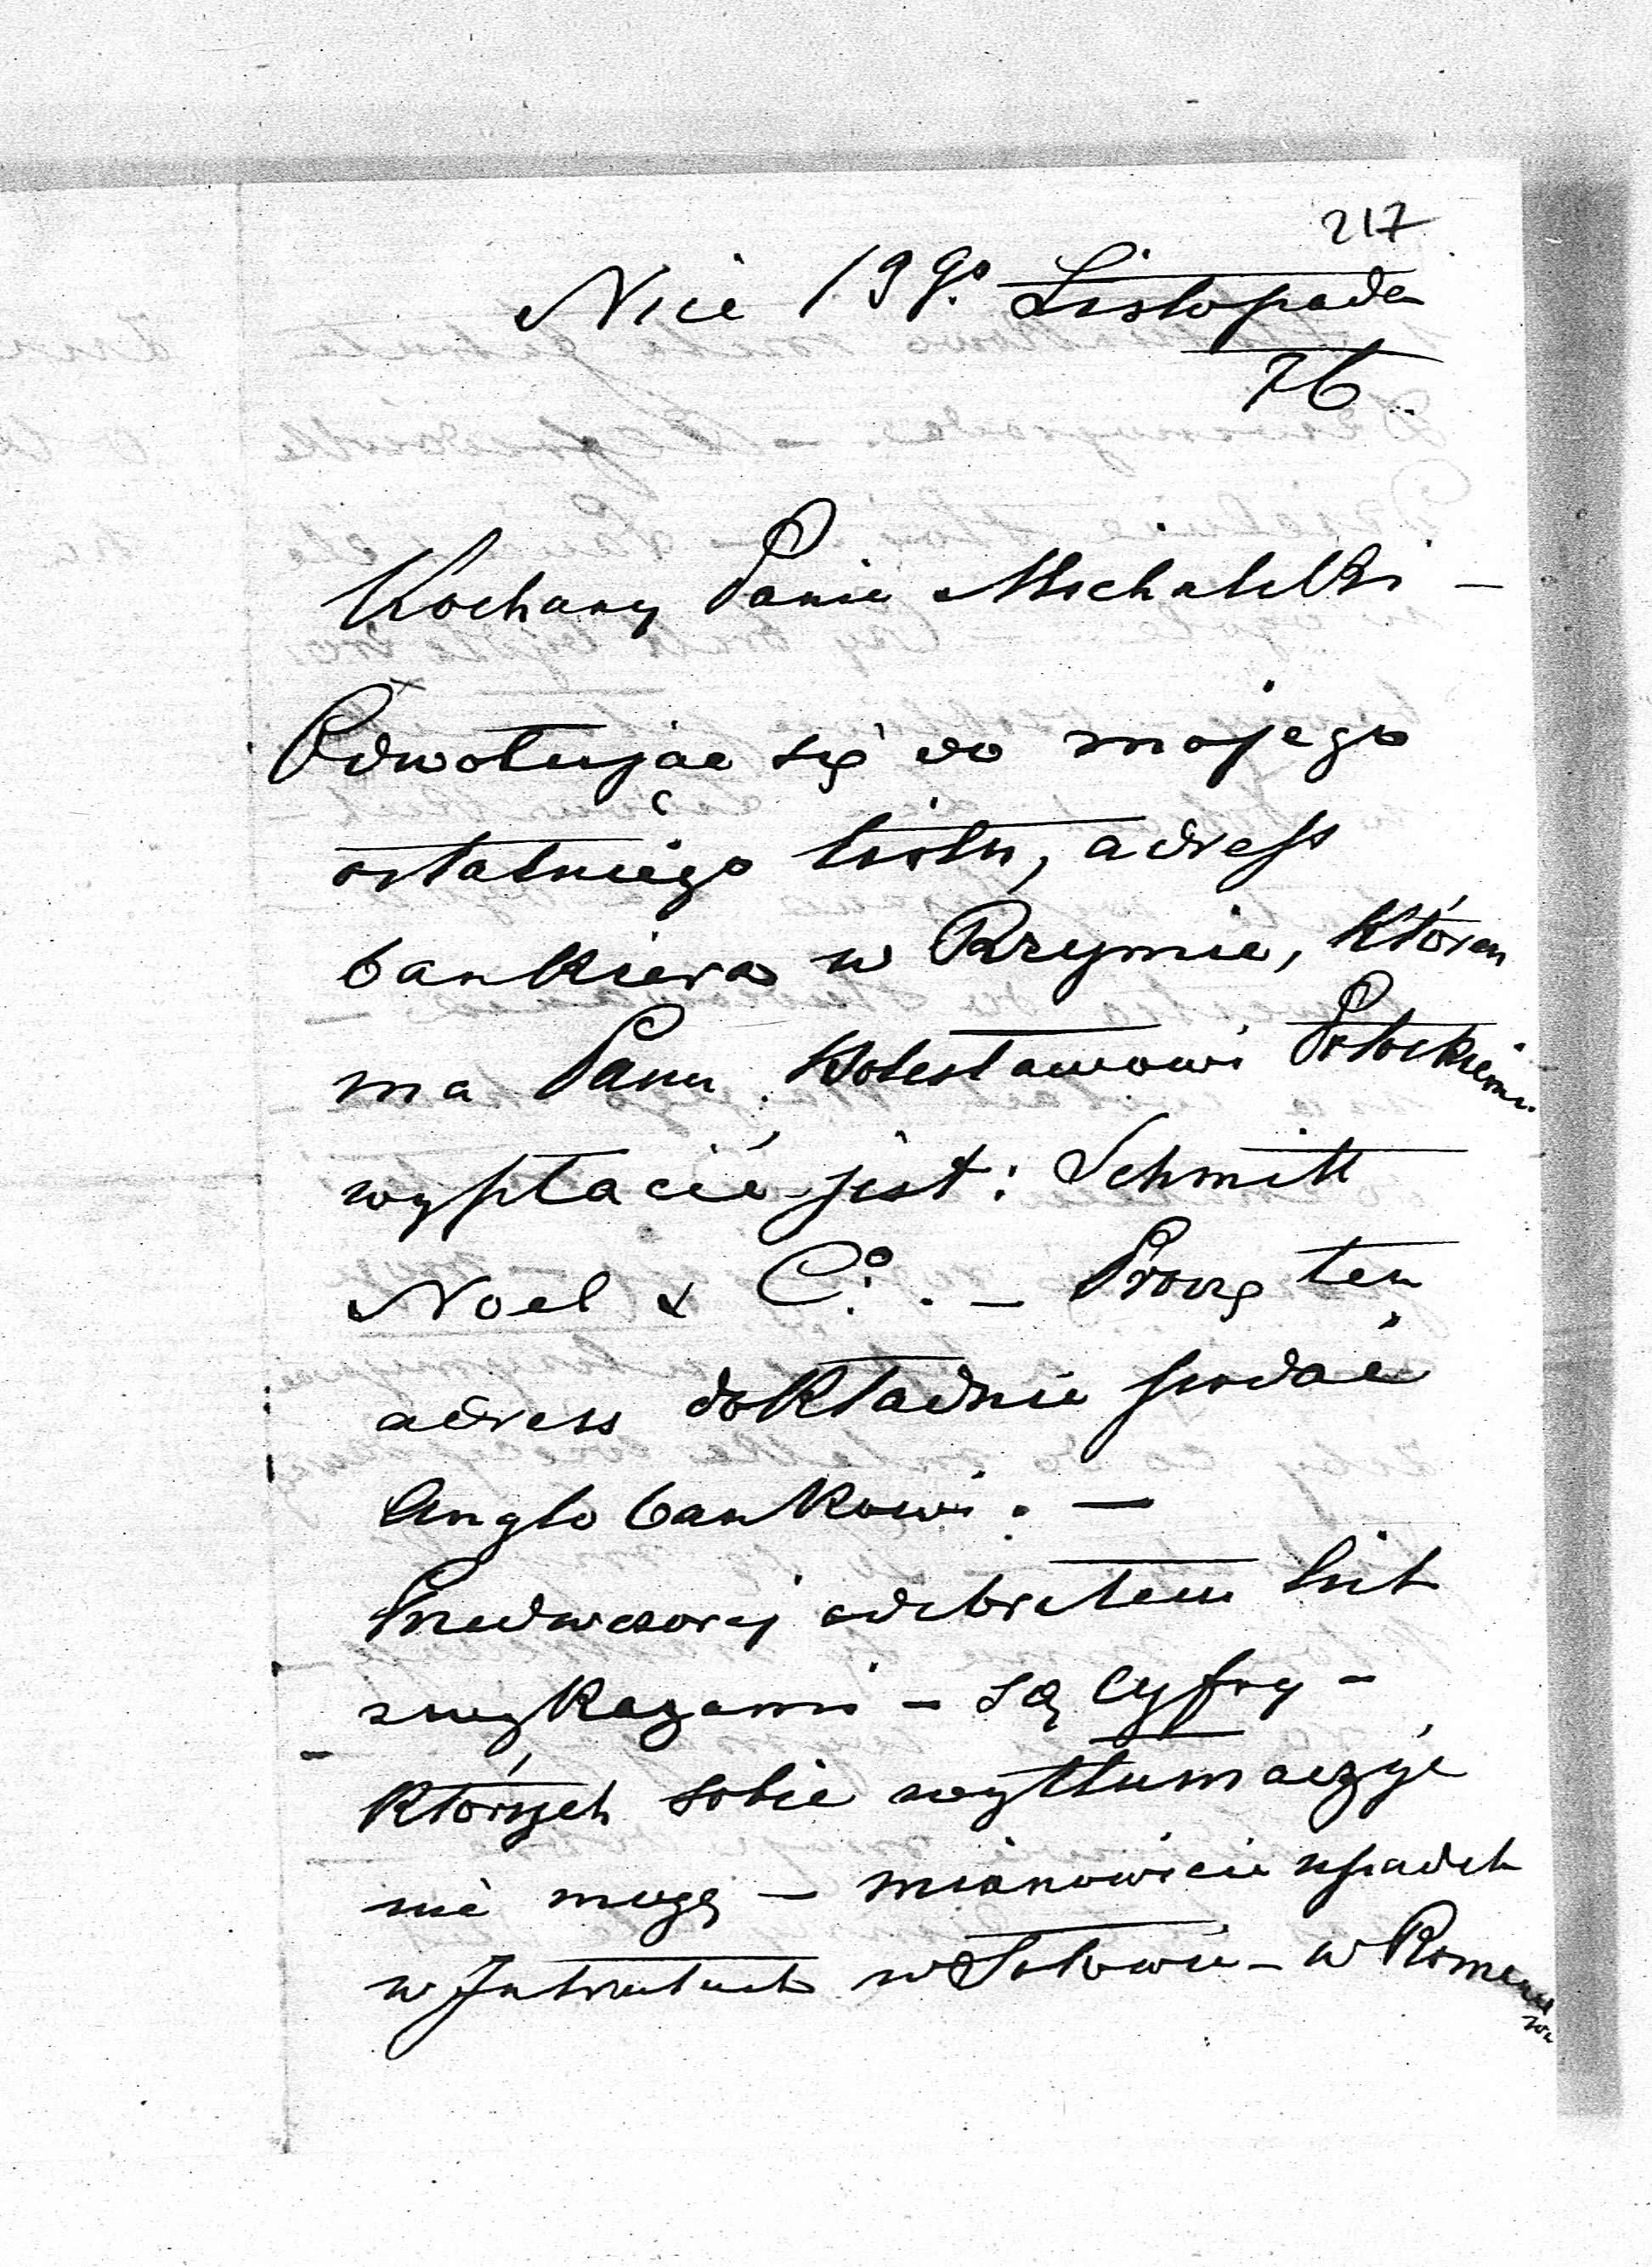 217
Nice 19go Listopada
76
Kochany Panie Michalski –
Odwołując się do mojego
ostatniego listu, adress
bankiera w Rzymie, któren
ma Panu Bolesławowi Potockiemu
wypłacić jest: Schmitt
Noel & Co. – Proszę ten
adress dokładnie podać
Anglobankowi. –
Przedwczoraj odebrałem list
z wykazami – są cyfry –
których sobie wytłumaczyć
nie mogę – mianowicie upadek
w Intratach w – w